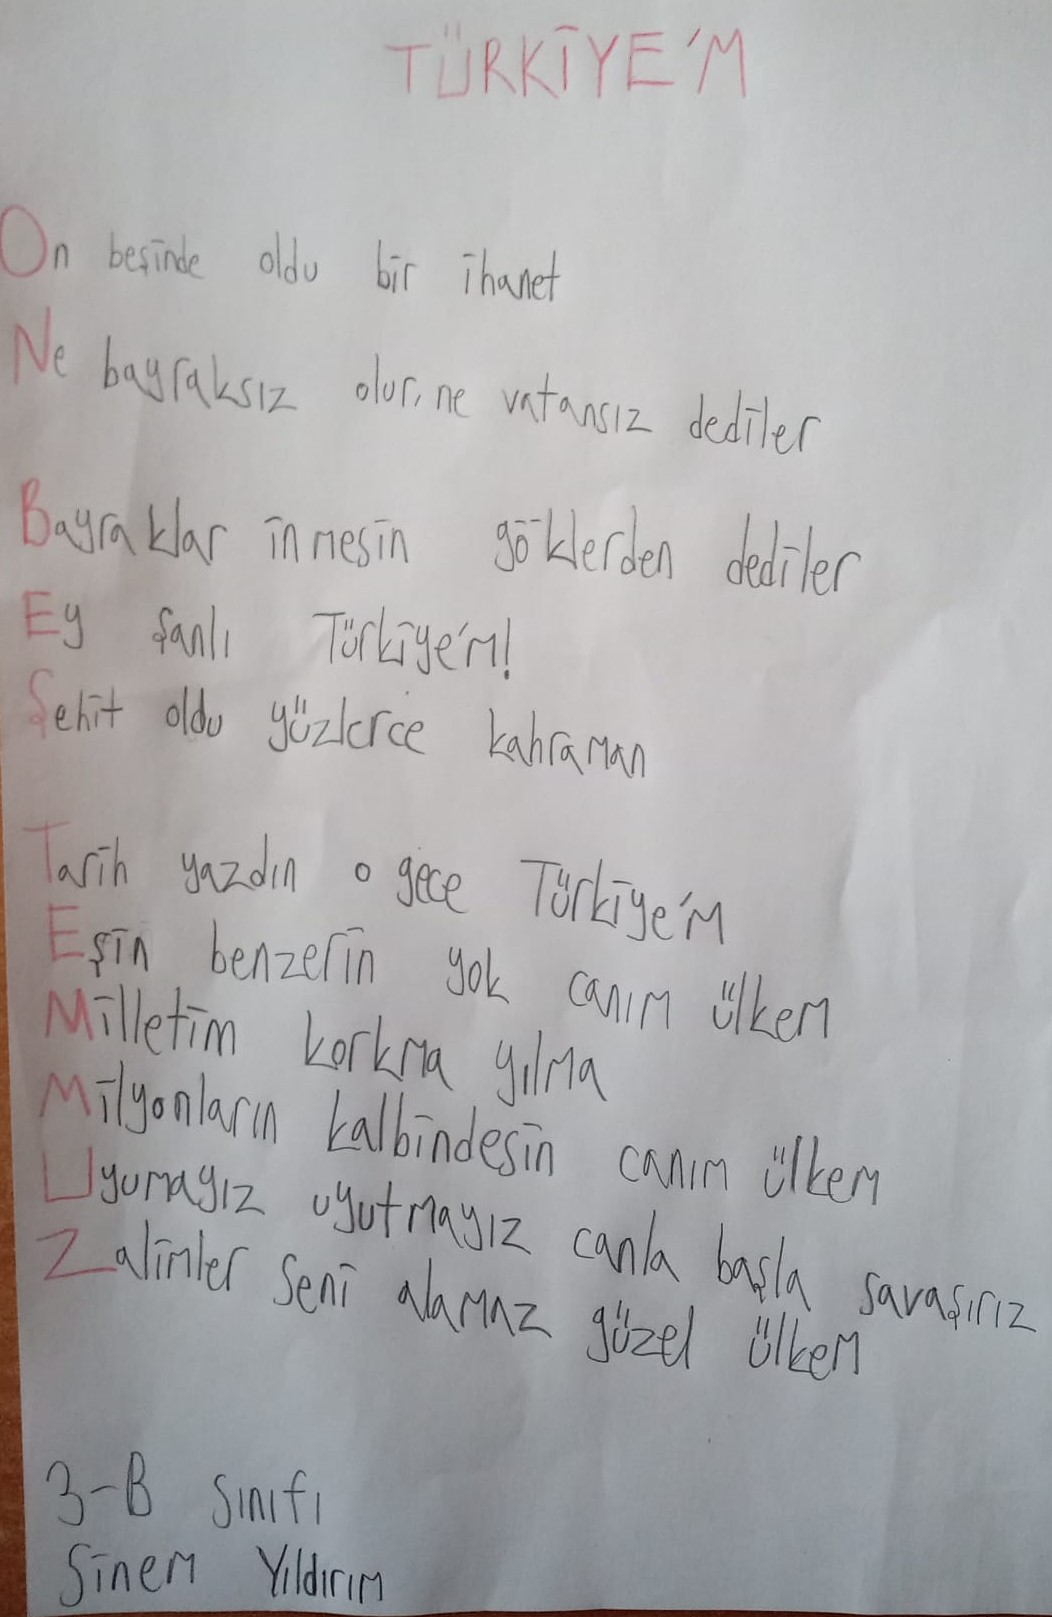 TÜRKİYE'M
On beşinde oldu bir ihanet
Ne bayraksız olur, ne vatansız dediler
Bayraklar inmesin göklerden dediler
Ey şanlı Türkiye'm!
Şehit oldu yüzlerce kahraman
Tarih yazdın o gece Türkiye'm
Eşin benzerin yok canım ülkem
Milletim korkma yılma
Milyonların kalbindesin canım ülkem
Uyumayız uyutmayız canla başla savaşırız
Zalimler seni alamaz güzel ülkem
3-B sınıfı
Sinem Yıldırım